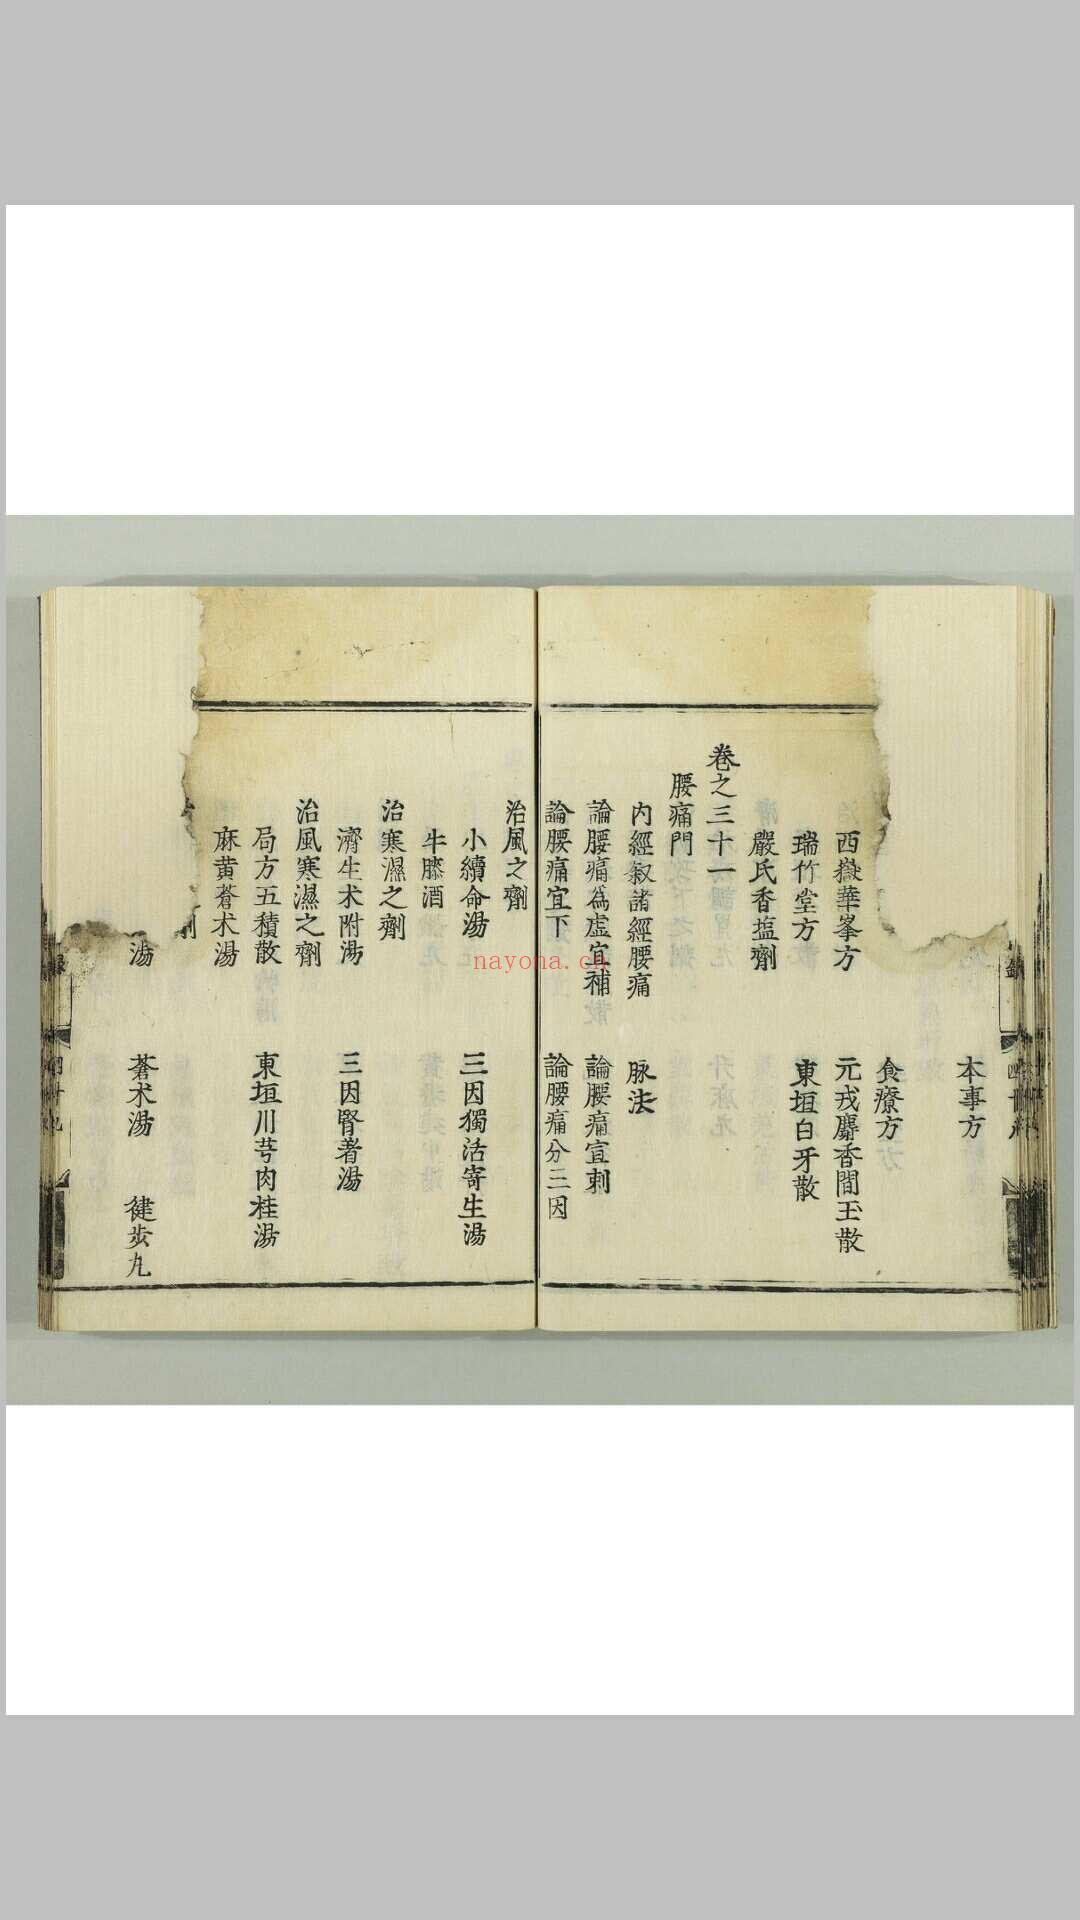 本事方
食療方
西嶽華峯方　元戎麝香間玉散
瑞竹堂方　東垣白牙散
嚴氏香塩劑
卷之三十一
腰痛門
内經叙諸經腰痛　脉法
論腰痛爲虚宜補　論腰痛宜刺
論腰痛宜下　論腰痛分三因
治風之劑
小續命湯　三因獨活寄生湯
牛膝酒
治寒濕之劑
濟生术附湯　三因腎著湯
治風寒濕之劑
局方五積散　東垣川芎肉桂湯
麻黄蒼术湯
湯　蒼术湯　健步丸
nayona.cn